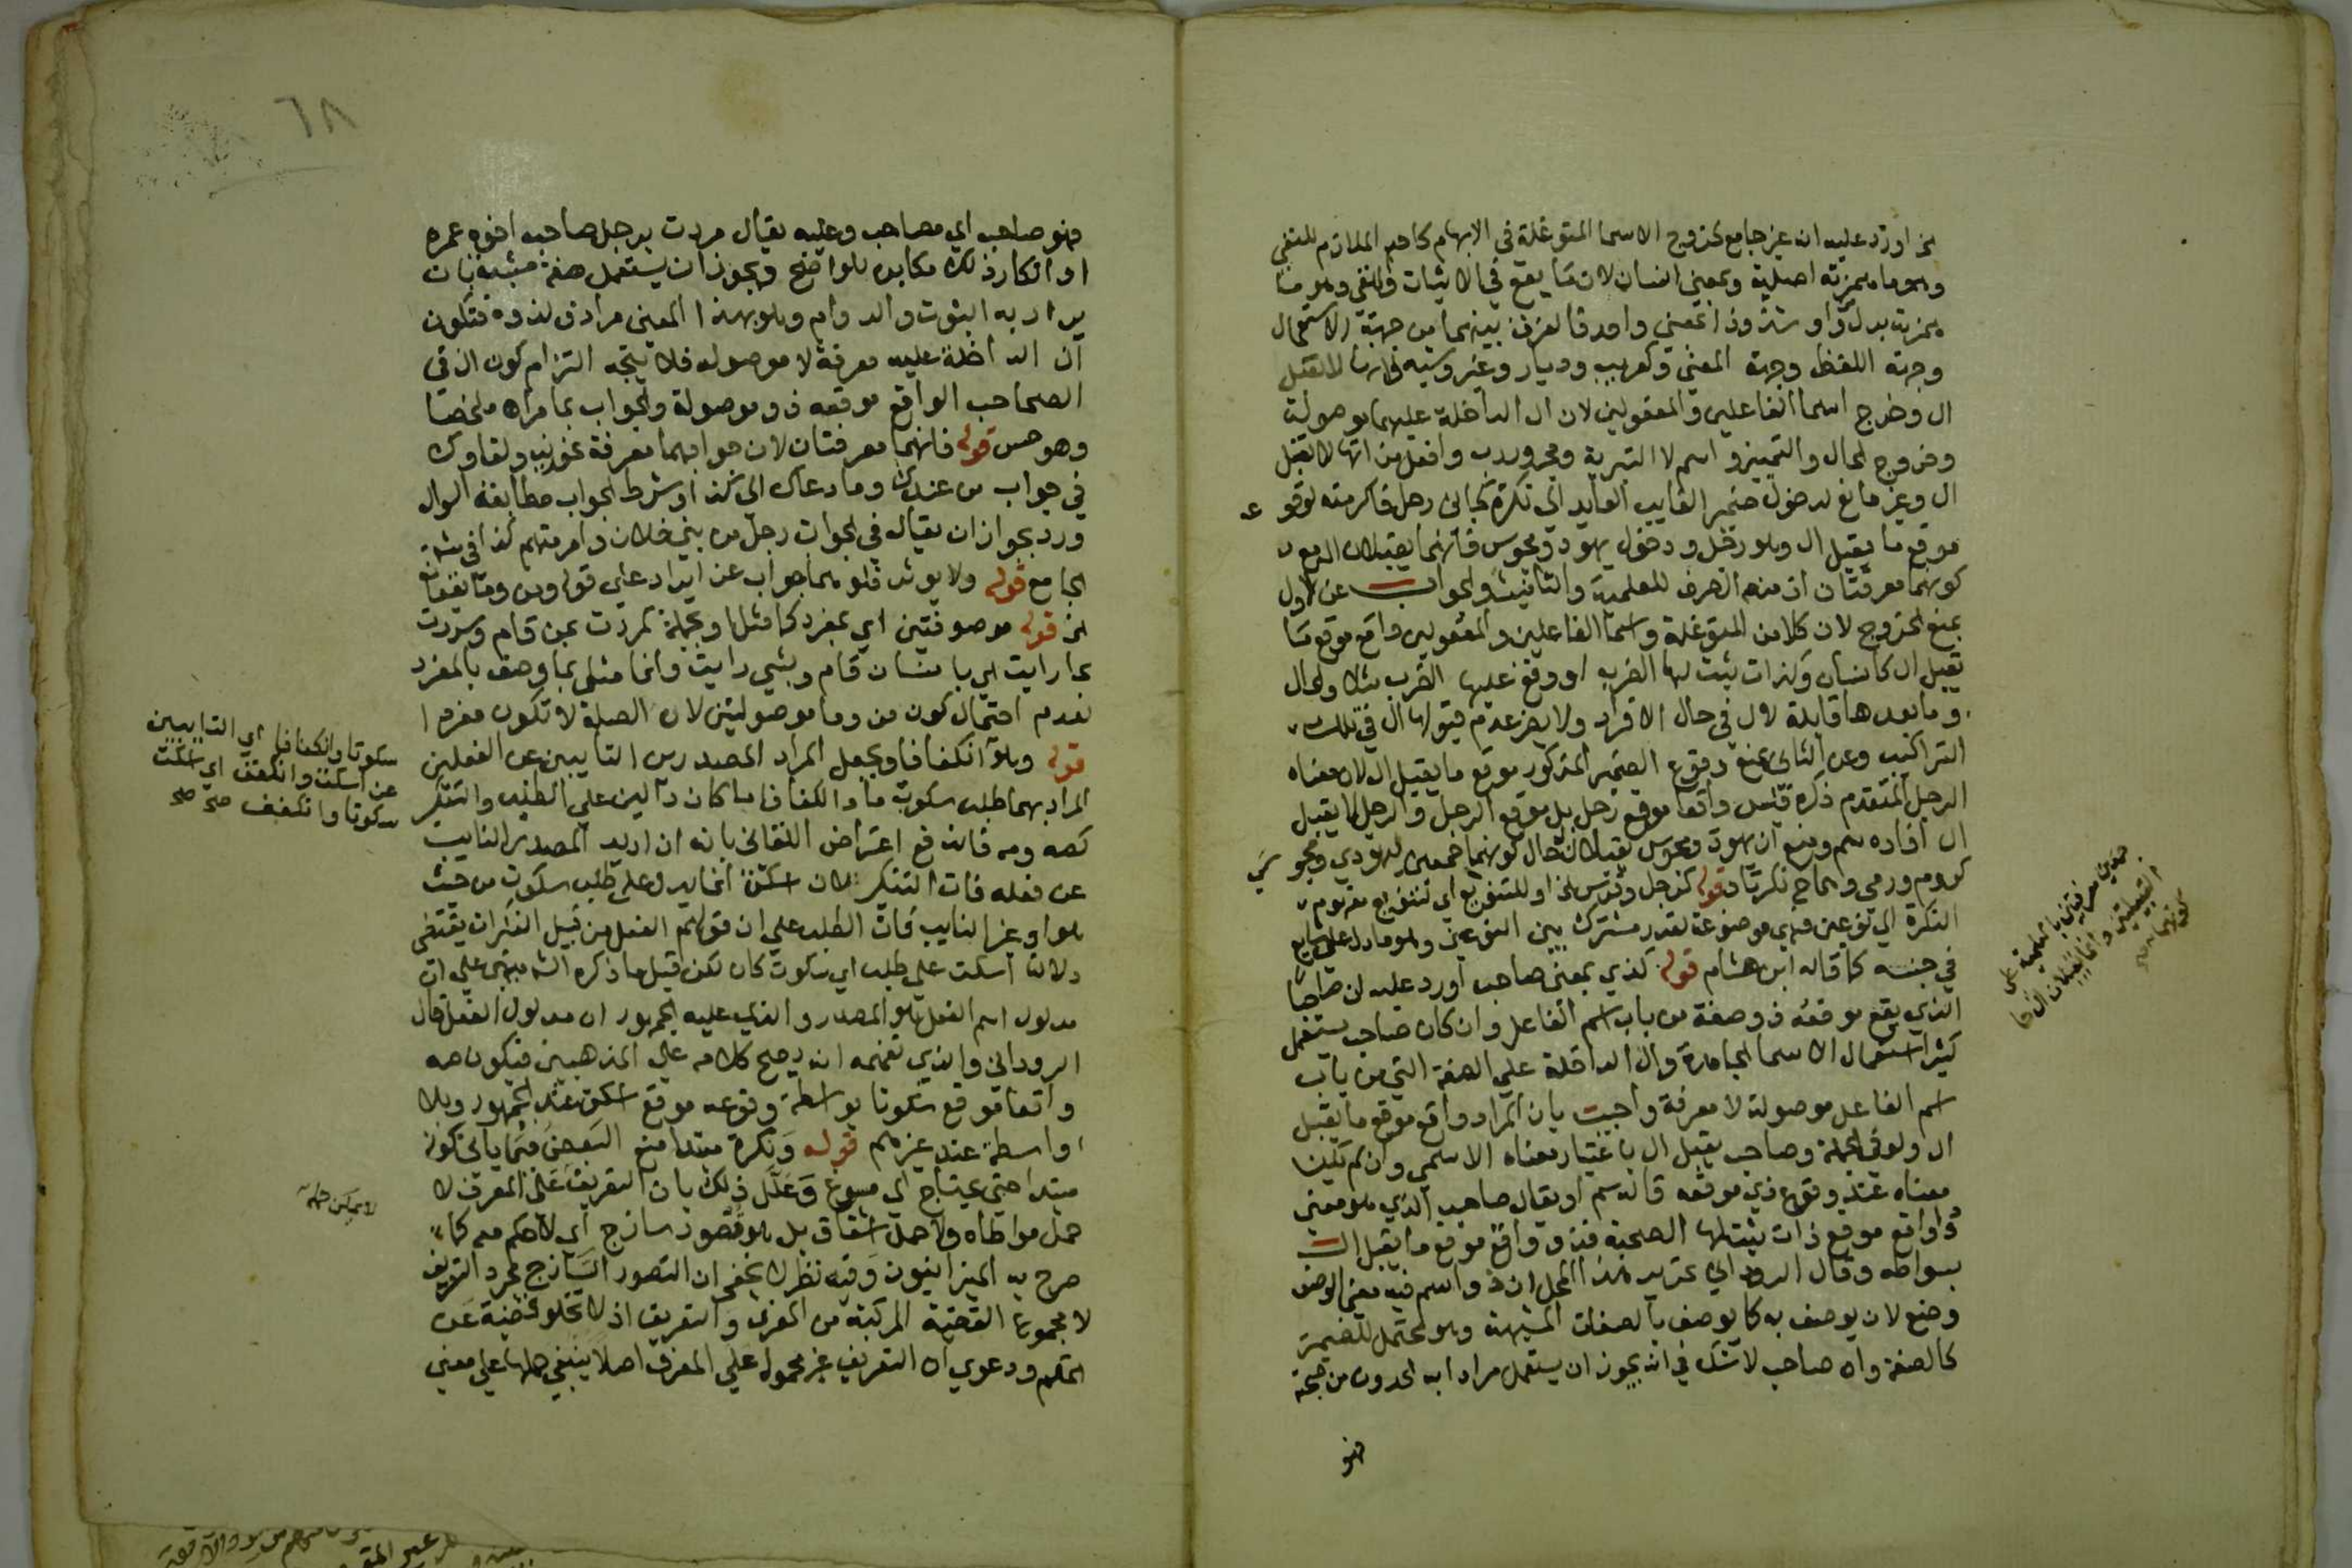 اورد عليه انه غير جامع لخروج الاسما المتوغلة في الابهام كاحد الملازم للنفي
وهو ما همزته اصلية وبمعنى انسان لان ما يقع في الاثبات والنفي وهو ما
همزته بدل واو شذوذا بمعنى واحد فالفرق بينهما من جهة الاستعمال
وجهة اللفظ وجهة المعنى وكعريب وديار وغير وشبه فانها لا تقبل
ال وخرج اسما الفاعلين والمفعولين لان ال الداخلة عليهما موصولة
وخروج الحال والتمييز واسم لا التبرية ومجرور رب وافعل من لانها لا تقبل
ال وغير مانع لدخول ضمير الغايب العايد الى نكرة كجاني رجل فاكرمته لوقوعه
موقع ما يقبل ال وهو رجل ودخول يهود ومجوس فانهما يقبلان ال مع
كونهما معرفتان اذ منع الصرف للعلمية والتانيث والجواب عن الاول
بمنع الخروج لان كلا من المتوغلة واسما الفاعلين والمفعولين واقع موقع ما
تقبل ال كانسان وكذات ثبت لها الضرب او وقع عليها الضرب مثلا والحال
وما بعدها قابلة لال في حال الافراد ولا يضر عدم قبولها ال في تلك
التراكيب وعن الثاني بمنع وقوع الضمير المذكور موقع ما يقبل ال لان معناه
الرجل المتقدم ذكره فليس واقعا موقع رجل بل موقع الرجل والرجل لا يقبل
ال افاده سم وبمنع ان يهود ومجوس يقبلان ال حال كونهما جمعين ليهودي ومجوسي
كروم ورومي وهما ح نكرتان قوله كرجل وفرس الخ او للتنويع اي تتنوع مفهوم
النكرة الى نوعين فهي موضوعة لقدر مشترك بين النوعين وهو ما دل على شايع
في جنسه كما قاله ابن هشام قوله كذي بمعنى صاحب اورد عليه ان صاحبا
الذي يقع موقعه ذو صفة من باب اسم الفاعل وان كان صاحب يستعمل
كثيرا استعمال الاسما الجامدة وال الداخلة على الصفة التي من باب
اسم الفاعل موصولة لا معرفة واجيب بان المراد واقع موقع ما يقبل
ال ولو في الجملة وصاحب يقبل ال باعتبار معناه الاسمي وان لم يكن
معناه عند وقوع ذي موقعه قاله سم او يقال صاحب الذي هو معنى
ذو واقع موقع ذات ثبت لها الصحبة فذو واقع موقع ما يقبل ال
بواسطة وقال الروداني تحرير هذا المحل ان ذو اسم فيه معنى الوصف
وضع لان يوصف به كما يوصف بالصفات المشبهة وهو محتمل للضمير
كالصفة وان صاحب لا شك في انه يجوز ان يستعمل مرادا به الحدوث من صحبه
فهو
٦٨
فهو صاحب اي مصاحب وعليه يقال مررت برجل صاحب اخوه عمرو
او انكار ذلك مكابرة للواضح ويجوز ان يستعمل صفة مشبهة بان
يراد به الثبوت والدوام وهو بهذا المعنى مرادف لذو فتكون
ال الداخلة عليه معرفة لا موصولة فلا يتجه التزام كون ال في
الصاحب الواقع موقعه ذو موصولة والجواب بما مر اه ملخصا
وهو حسن قوله فانهما معرفتان لان جوابهما معرفة نحو زيد ولقاوك
في جواب من عندك وما دعاك الى كذا وشرط الجواب مطابقة السوال
ورد بجواز ان يقال في الجواب رجل من بني فلان وامر مهم كذا في شرح
الجامع قوله ولا يوثر فهو هما جواب عن ايراد على قوله ومن وما يقعان
الخ قوله موصوفتين اي بمفرد كما مثل او بجملة كمررت بمن قام وسررت
بما رايت اي بانسان قام وبشي رايت وانما مثل بما وصف بالمفرد
لعدم احتمال كون من وما موصولتين لان الصلة لا تكون مفردا
قوله وهو انكفافا ويجعل المراد المصدرين النايبين عن الفعلين
المراد بهما طلب سكوت ما والكفاف ما كان دالين على الطلب والتنكير
كصه ومه فاندفع اعتراض اللقاني بانه ان اريد المصدر النايب
عن فعله فات التنكير لان اسكت انما يدل على طلب سكوت من حيث
هو او غير النايب فات الطلب على ان قولهم الفعل من قبيل النكرات يقتضي
دلالة اسكت على طلب اي سكوت كان لكن قيل ما ذكره الشم مبني على ان
مدلول اسم الفعل هو المصدر والذي عليه الجمهور ان مدلوله الفعل قال
الروداني والذي نفهمه انه يصح كلامه على المذهبين فيكون صه
واقعا موقع سكوتا بواسطة وقوعه موقع اسكت عند الجمهور وبلا
واسطة عند غيرهم قوله ونكرة مبتدا منع البعض فيما ياتي كونه
مبتدا حتى يحتاج الى مسوغ وعلل ذلك بان التعريف على المعرف لا
حمل مواطاه ولا حمل اشتقاق بل هو تصور ساذج اي لا حكم معه كما
صرح به الميزانيون وفيه نظر لا يخفى ان التصور الساذج مجرد التعريف
لا مجموع القضية المركبة من المعرف والتعريف اذ لا تخلو قضية عن
الحكم ودعوى ان التعريف غير محمول على المعرف اصلا ينبغي حملها على معنى
سكوتا وانكفافا اي النايبين
عن اسكت وانكفف اي اسكت
سكوتا وانكفف صح صح